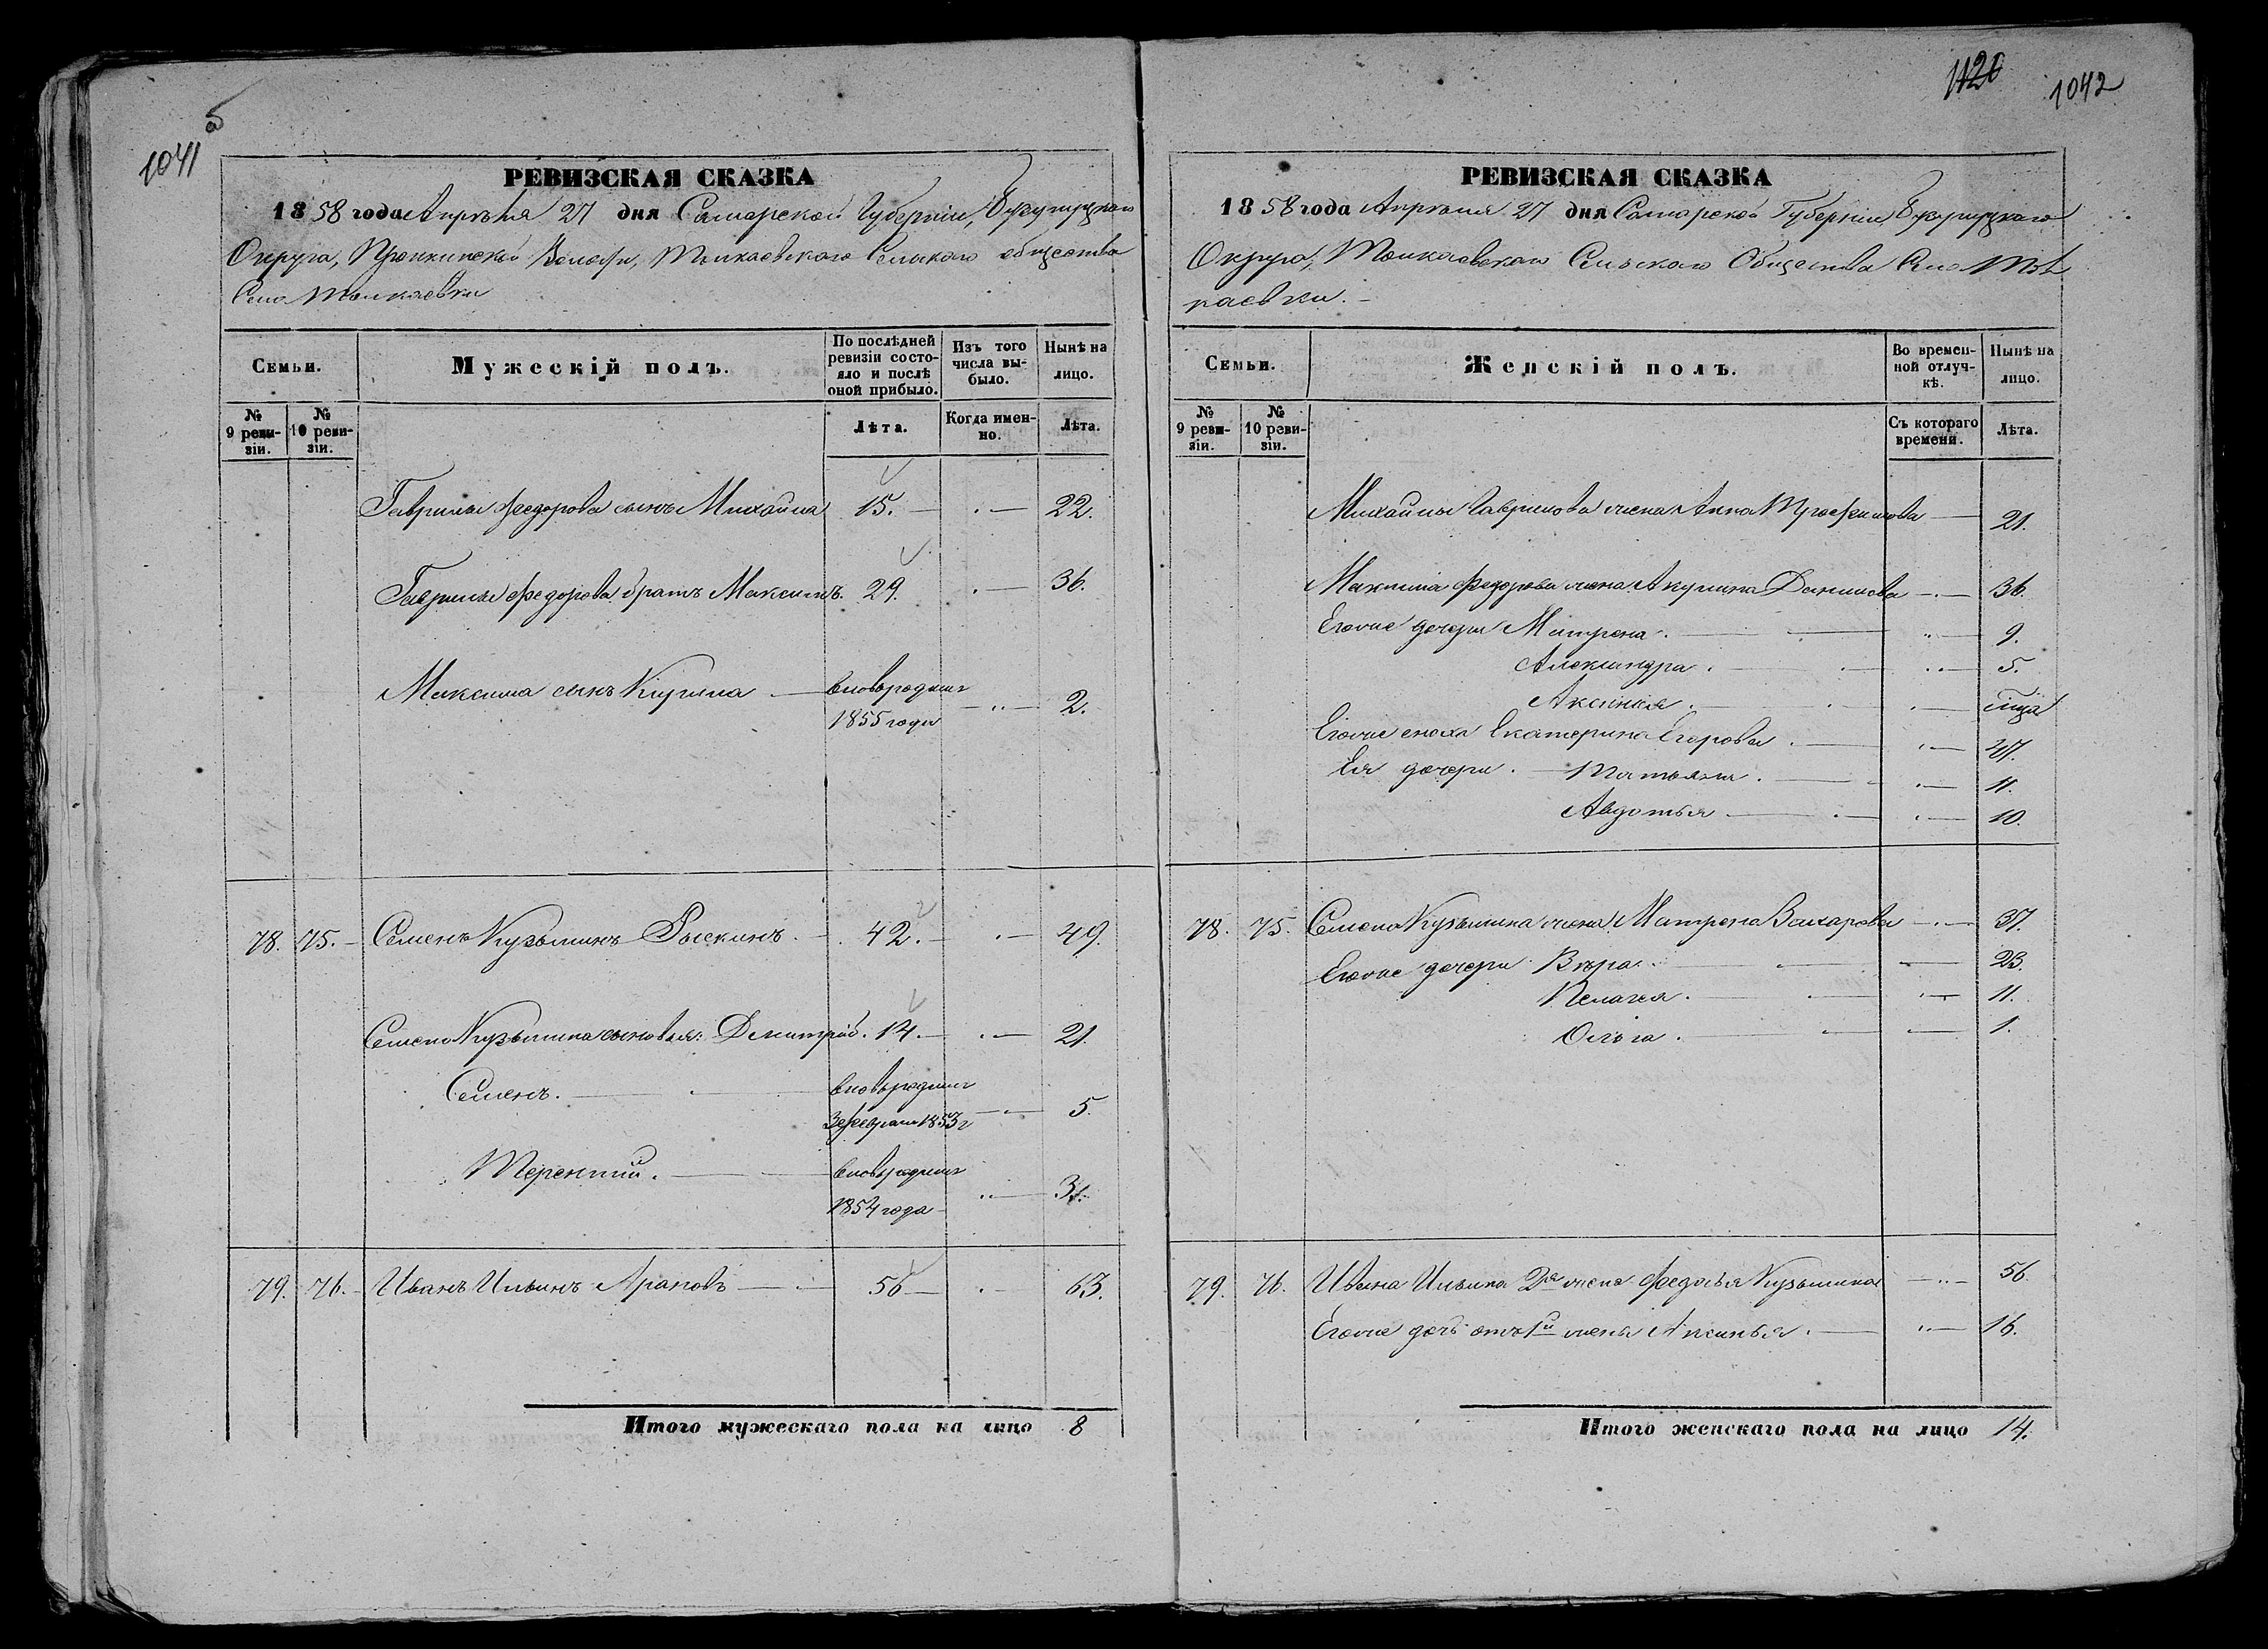 1041
б
РЕВИЗСКАЯ СКАЗКА
1858 года Апрѣля 27 дня Самарской Губерніи, Бузулуцкаго
Округа, Пронкинской Волости, Толкаевскаго Сельскаго общества
Села Толкаевки
Семьи.
Мужескій полъ.
По послѣдней ревизіи состояло и послѣ оной прибыло.
Изъ того числа выбыло.
Нынѣ на лицо.
№ 9 ревизіи.
№ 10 ревизіи.
Лѣта.
Когда именно.
Лѣта.
Гаврилы Федорова сынъ Михайла 15. 22.
Гаврилы Федорова братъ Максимъ. 29. 36.
Максима сынъ Кирила вновьрадишс 2.
1855 года
78. 75. Семенъ Кузьминъ Рыскинъ 42. 49.
Семена Кузьмина сыновья: Дмитрій. 14. 21.
Семенъ. 5.
3 февраля 1853 г
Терентий. 3.
1854 года
79. 76. Иванъ Ильинъ Араповъ 56 63.
Итого мужескаго пола на лицо 8
1120
1042
РЕВИЗСКАЯ СКАЗКА
1858 года Апрѣля 27 дня Самарской Губерніи Бузулуцкаго
Округа, Толкаевскаго Сельскаго Общества Села Тол
каевки.
Семьи.
Женскій полъ.
Во временной отлучкѣ.
Нынѣ на лицо.
№ 9 ревизіи.
№ 10 ревизіи.
Съ котораго времени.
Лѣта.
Михайлы Гаврилова жена Анна Трофимова 21.
Максима Федорова жена Акулина Данилова 36.
Егоже дочери Матрена. 9.
Александра. 5.
Аксинья.
Егоже сноха Екатерина Егорова 47.
Ея дочери. Татьяна. 11.
Авдотья 10.
78. 75. Семена Кузьмина жена Матрена Захарова 37.
Егоже дочери Вѣра. 23.
Пелагея. 11.
Ольга. 1.
79. 76. Ивана Ильина 2я жена Федосья Кузьмина 56.
Егоже дочь отъ 1й жены Аксинья. 16.
Итого женскаго пола на лицо 14.